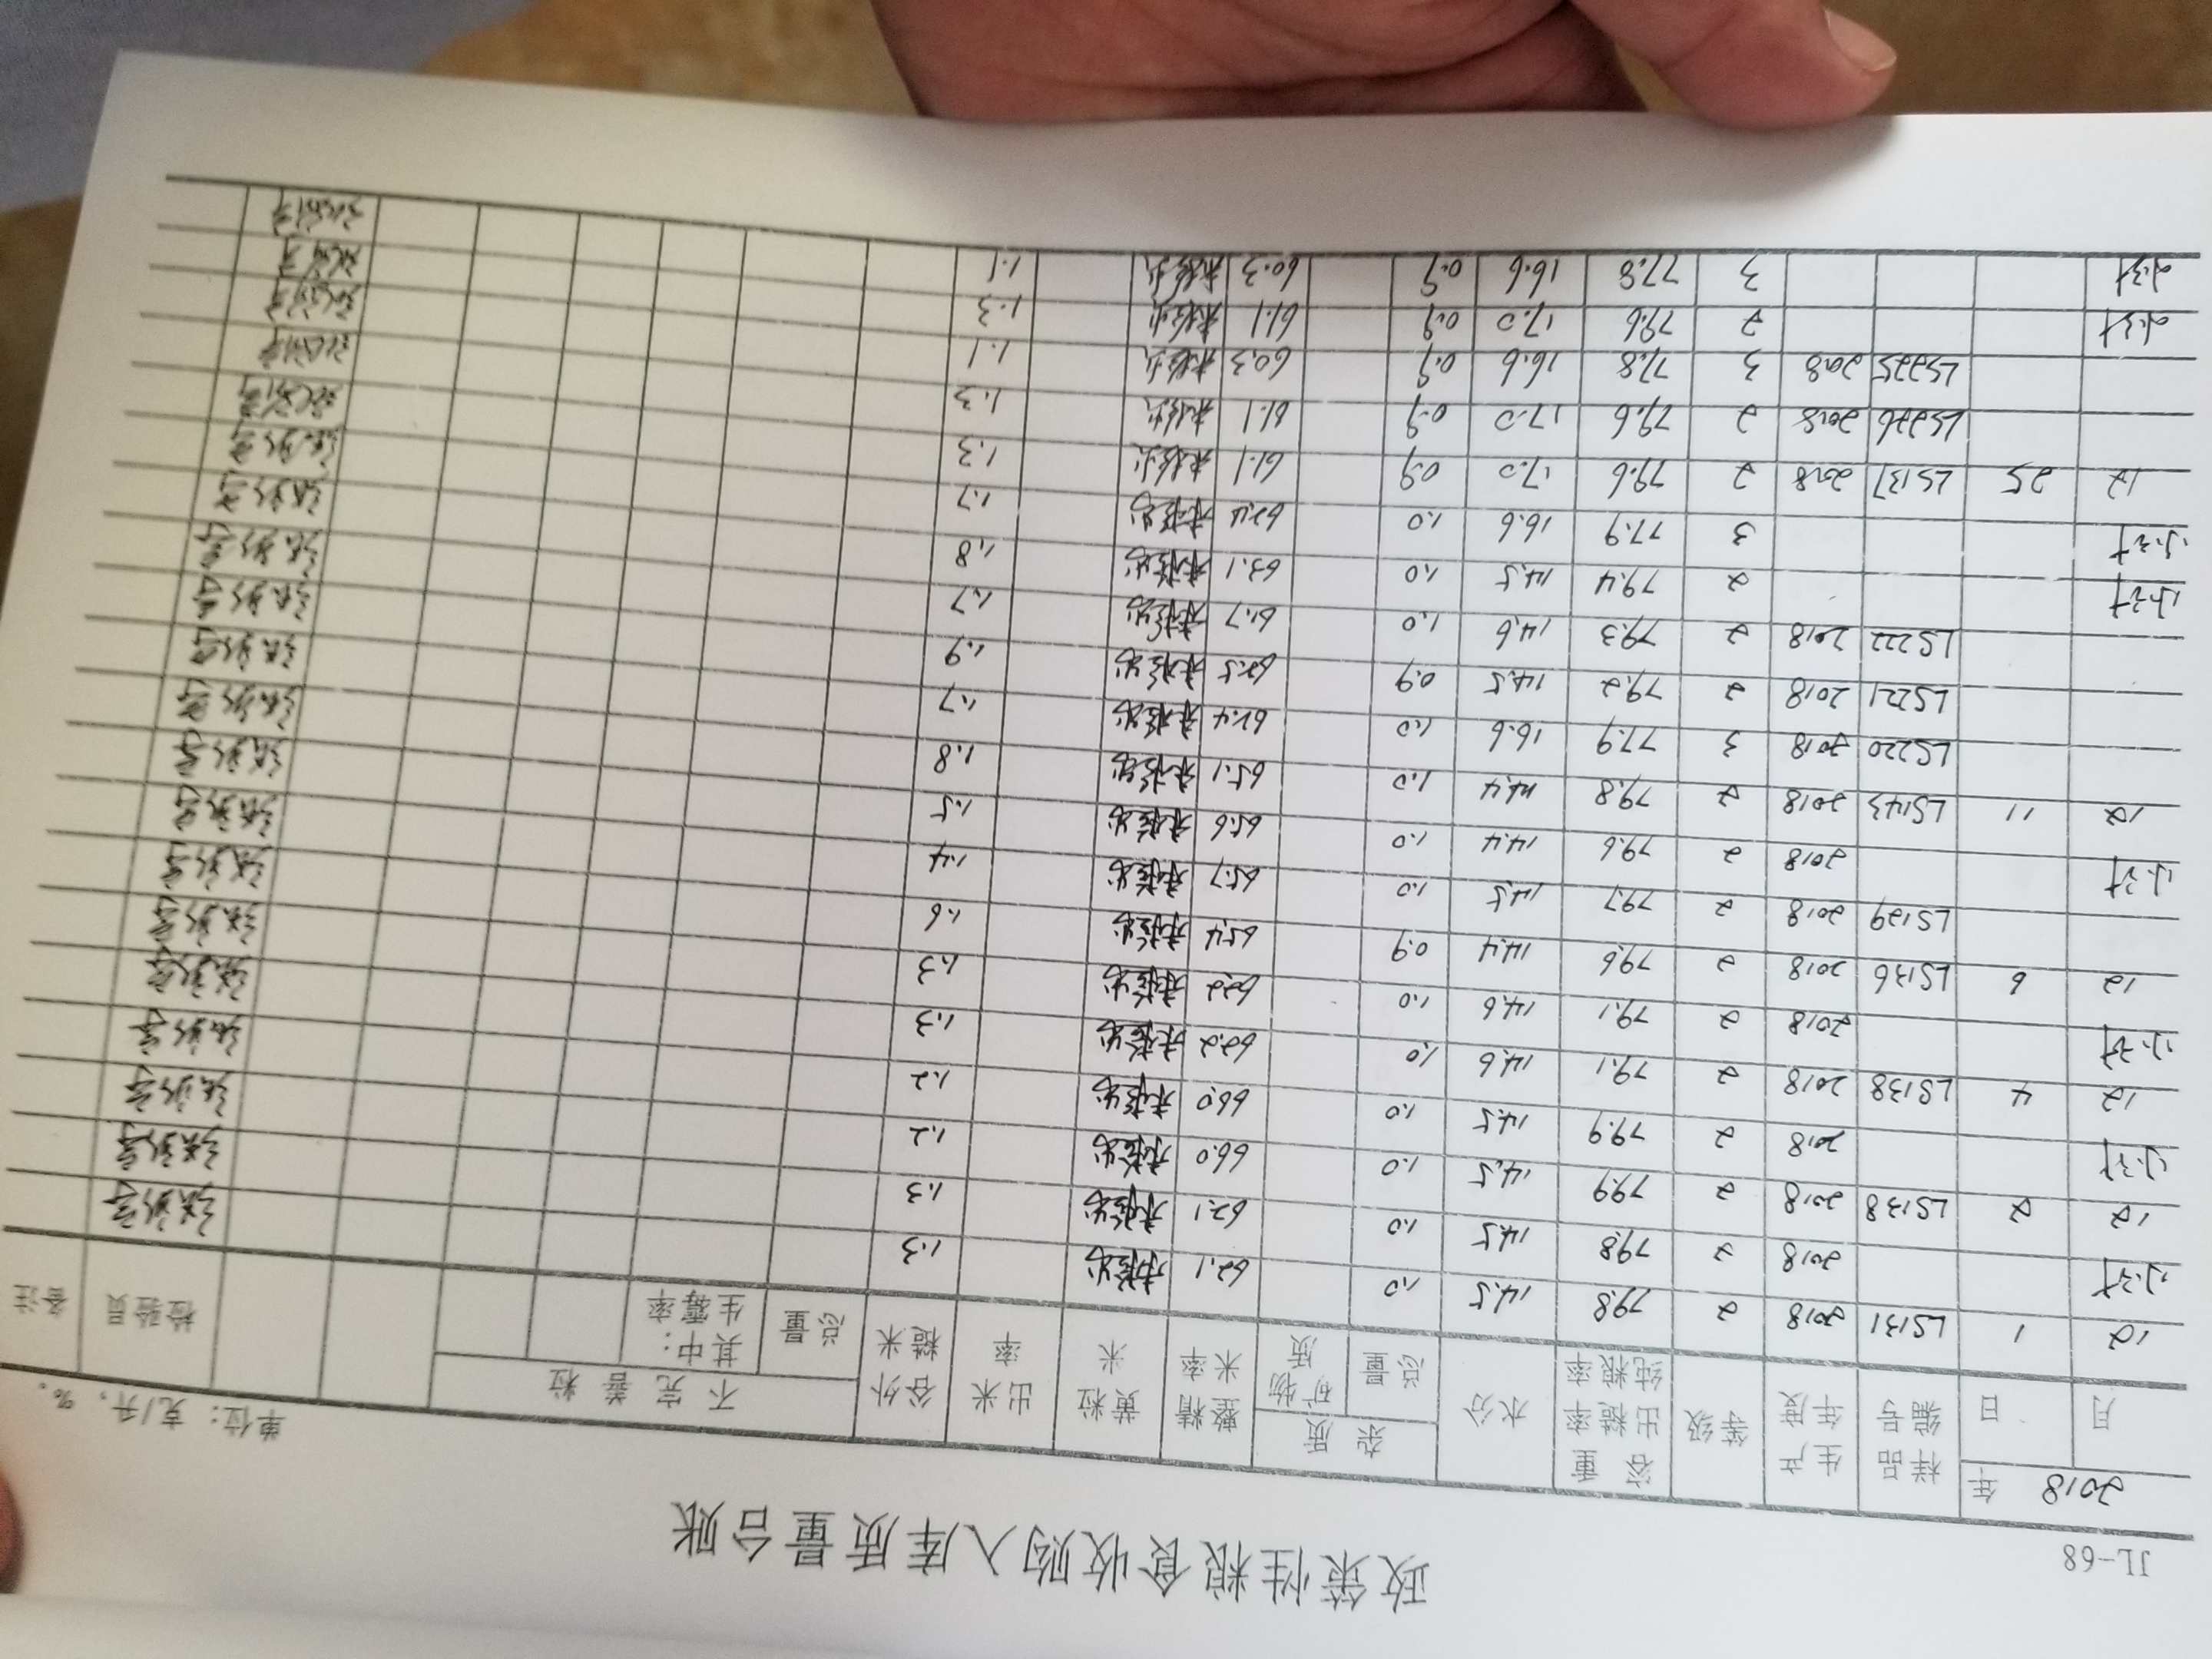 JL-68
政策性粮食收购入库质量台账
单位：克/升，%。
2018 年 月 日 样品编号 生产年度 等级 容重 出糙率 纯粮率 水分 杂质 总量 矿物质 整精米率 黄粒米 出米率 谷外糙米 不完善粒 总量 其中：生霉率 检验员 备注
12 1 LS131 2018 2 79.8 14.5 1.0 62.1 未检出 1.3
小计 2018 2 79.8 14.5 1.0 62.1 未检出 1.3
12 2 LS138 2018 2 79.9 14.5 1.0 66.0 未检出 1.2
小计 2018 2 79.9 14.5 1.0 66.0 未检出 1.2
12 4 LS138 2018 2 79.1 14.6 1.0 62.2 未检出 1.3
小计 2018 2 79.1 14.6 1.0 62.2 未检出 1.3
12 6 LS136 2018 2 79.6 14.4 0.9 65.4 未检出 1.6
LS129 2018 2 79.7 14.5 1.0 65.7 未检出 1.4
小计 2018 2 79.6 14.4 1.0 65.6 未检出 1.5
12 11 LS143 2018 2 79.8 14.4 1.0 65.1 未检出 1.8
LS220 2018 3 77.9 16.6 1.0 62.4 未检出 1.7
LS221 2018 2 79.2 14.5 0.9 62.5 未检出 1.9
LS222 2018 2 79.3 14.6 1.0 61.7 未检出 1.7
小计 2 79.4 14.5 1.0 63.1 未检出 1.8
小计 3 77.9 16.6 1.0 62.4 未检出 1.7
12 25 LS137 2018 2 79.6 17.0 0.9 61.1 未检出 1.3
LS226 2018 2 79.6 17.0 0.9 61.1 未检出 1.3
LS225 2018 3 77.8 16.6 0.9 60.3 未检出 1.1
小计 2 79.6 17.0 0.9 61.1 未检出 1.3
小计 3 77.8 16.6 0.9 60.3 未检出 1.1